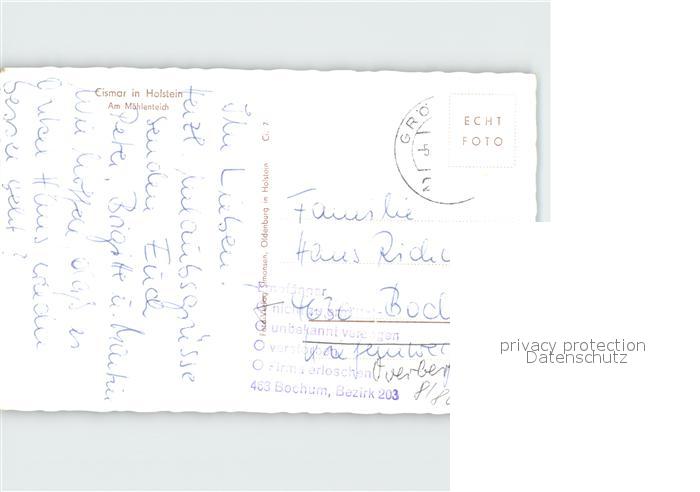 Cismar in Holstein
Am Mühlenteich
Ihr Lieben!
herzl. Urlaubsgrüsse
senden Euch
Peter, Brigitte u.
Wir hoffen, daß es
Onkel Hans wieder
besser geht!
Simonsen, Oldenburg in Holstein
GRÖ
ECHT
FOTO
Familie
Hans Rich
4630 Boch
Empfänger
unbekannt verzogen
verstorben
Firma erloschen
463 Bochum, Bezirk 203
privacy protection
Datenschutz